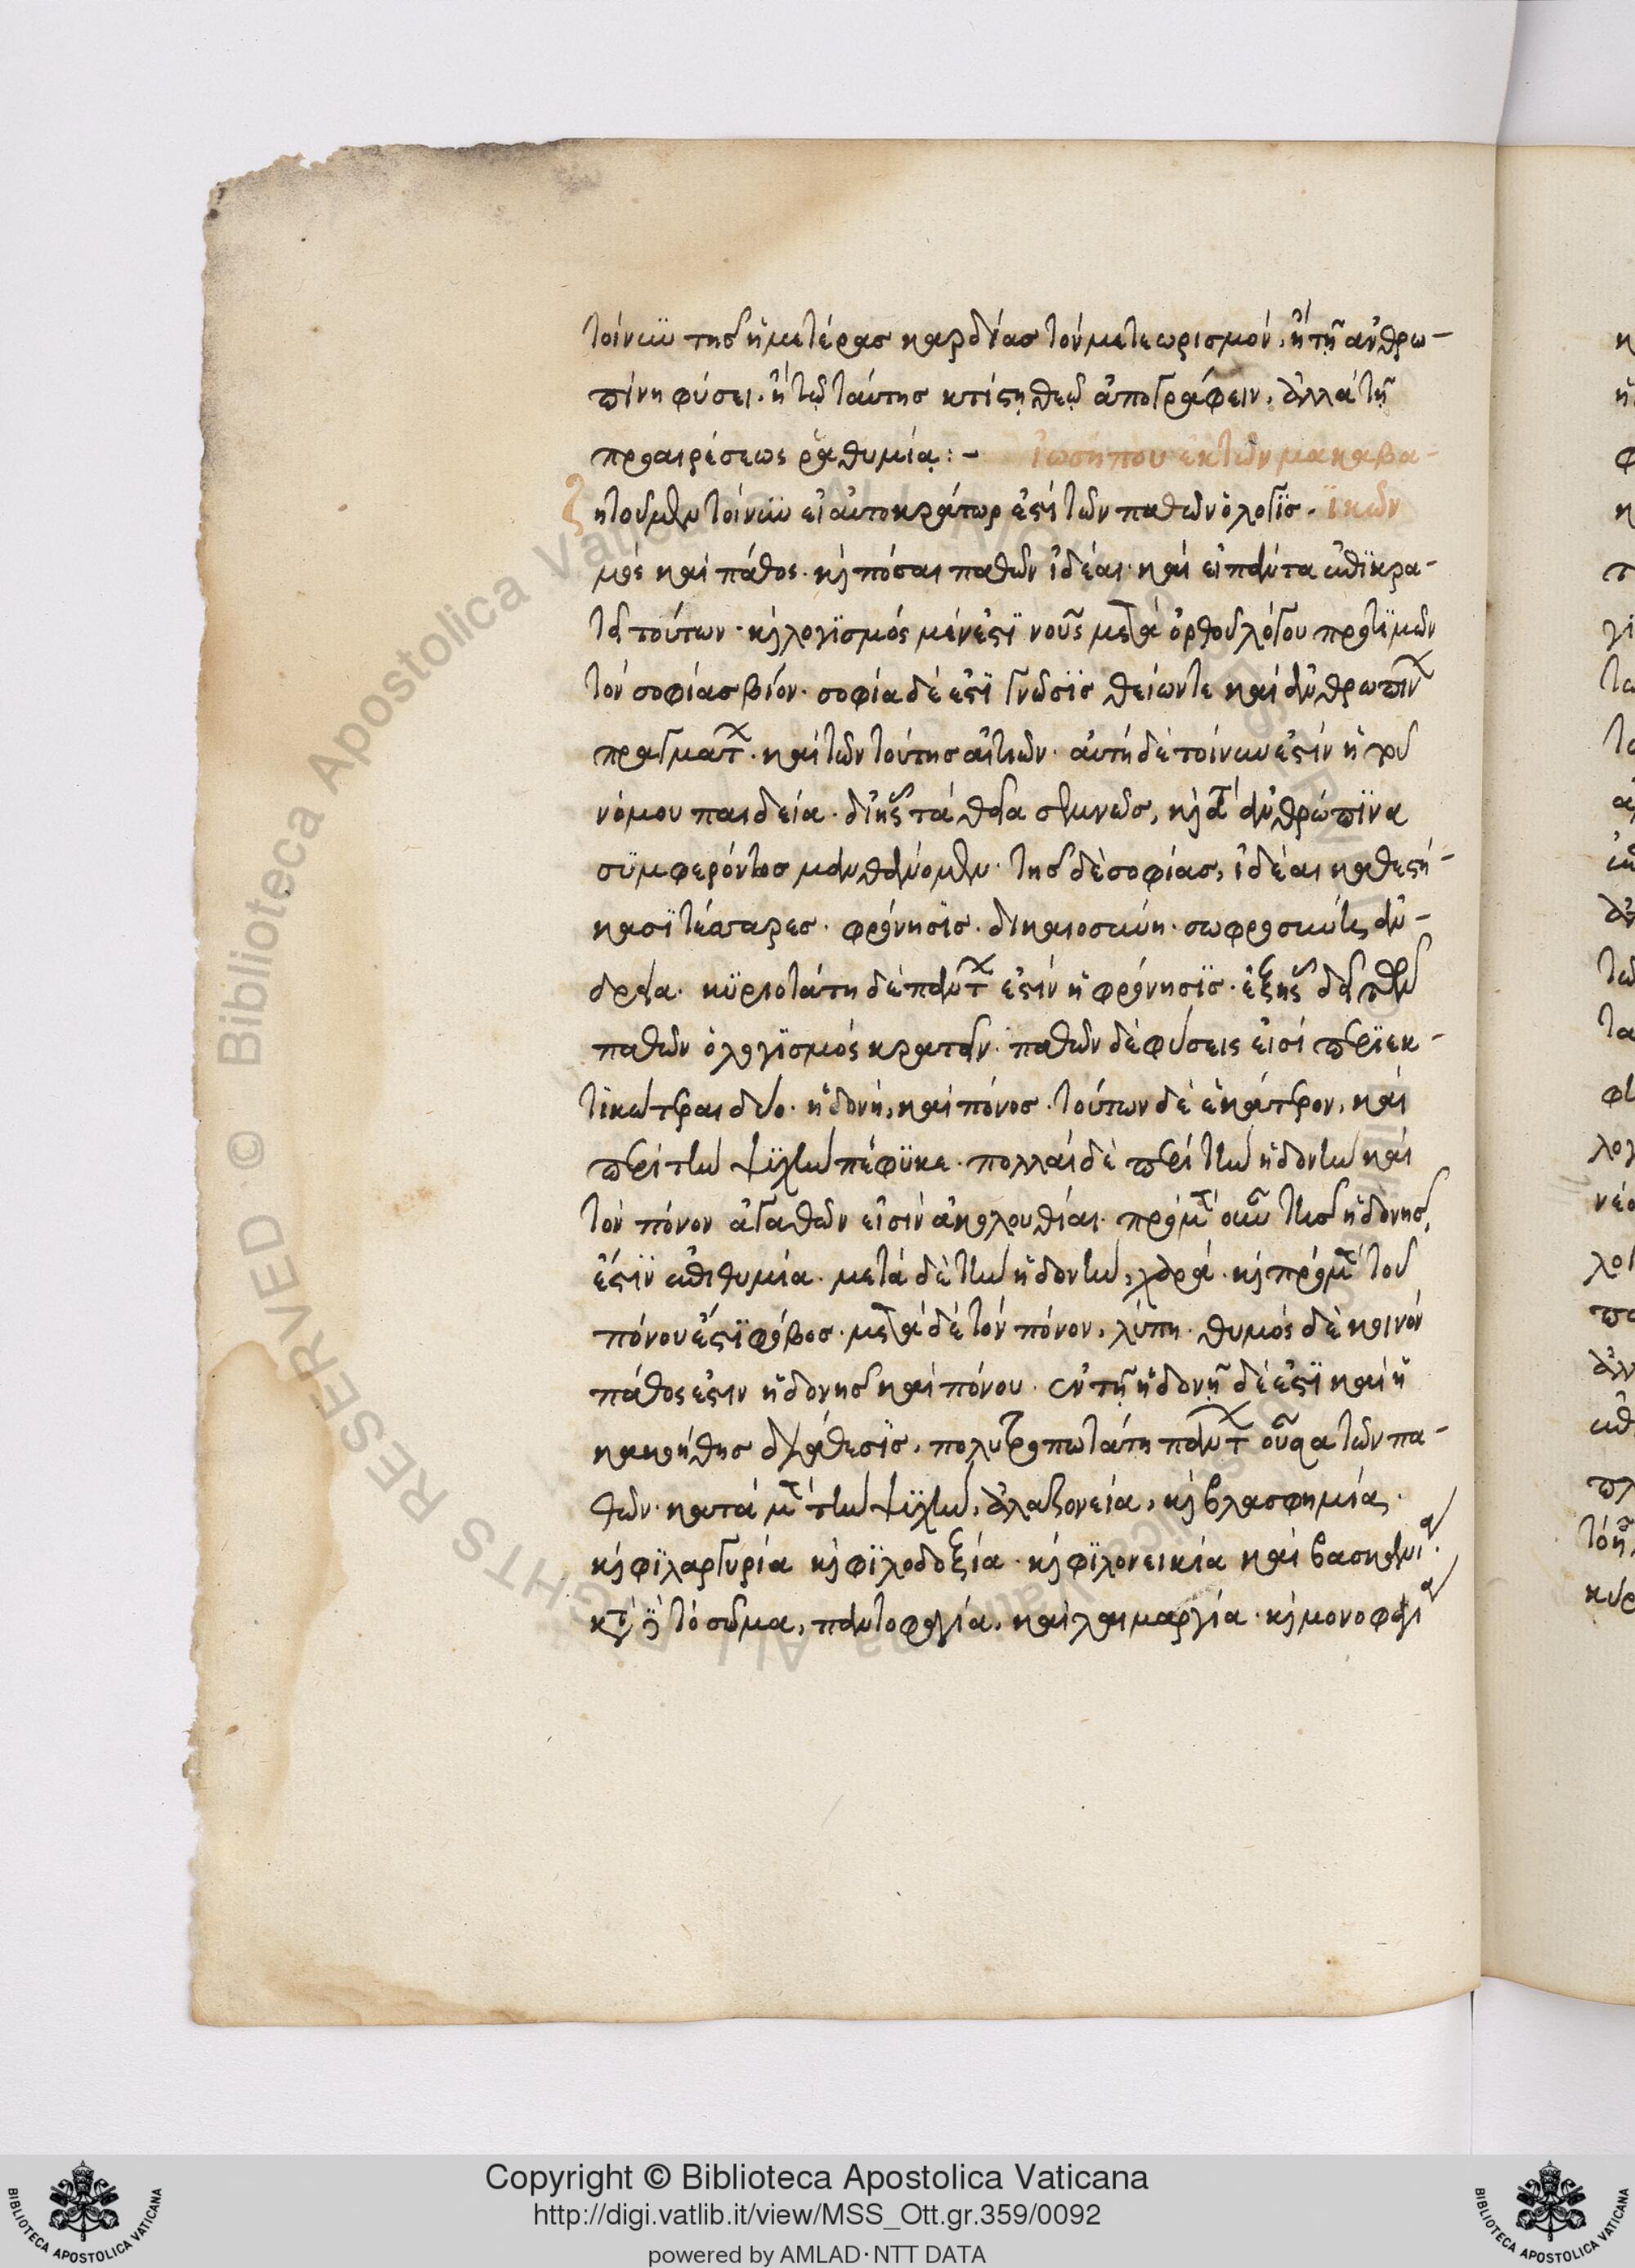 τοίνυν τῆς ἡμετέρας καρδίας τὸν μετεωρισμόν, ἢ τῇ ἀνθρω-
πίνη φύσει, ἢ τῷ ταύτης κτίστῃ θεῷ ἀπογράφειν, ἀλλὰ τῇ
προαιρέσεως ῥαθυμίᾳ :- ἰωσήπου ἐκ τῶν μακαβα-
ζητοῦμεν τοίνυν εἰ αὐτοκράτωρ ἐστὶ τῶν παθῶν ὁ λογϊσ- ϊκῶν
μός καὶ πάθος· κ πόσαι παθῶν ἰδέαι· καὶ εἰ πάντα ἐπϊκρα-
τεῖ τούτων· κ λογϊσμός μέν ἐστϊ νοῦς μετὰ ὀρθοῦ λόγου προτϊμῶν
τὸν σοφίας βίον· σοφία δέ ἐστϊ γνῶσϊς θείων τε καὶ ἀνθρωπίν
πραγμάτ· καὶ τῶν τούτης αἰτιῶν· αὐτὴ δὲ τοίνυν ἐστὶν ἡ τοῦ
νόμου παιδεία· δι' ἧς τὰ θεῖα σεμνῶς, κ τὰ ἀνθρώπϊνα
σϋμφερόντος μανθάνομεν· τῆς δὲ σοφίας, ἰδέαι καθεστή-
κασϊ τέσσαρες· φρόνησϊς· δικαιοσύνη· σωφροσύνης ἀν-
δρεία· κϋριοτάτη δὲ πάντ ἐστὶν ἡ φρόνησϊς· ἐξ ἧς δεῖ τῶν
παθῶν ὁ λογϊσμός κρατεῖν· παθῶν δὲ φύσεις εἰσί περϊεκ-
τικώτεραι δύο· ἡδονή, καὶ πόνος· τούτων δὲ ἑκάτερον, καὶ
περὶ τὴν ψϋχὴν πέφϋκε· πολλαὶ δὲ περὶ τὴν ἡδονὴν καὶ
τὸν πόνον ἀγαθῶν εἰσὶν ἀκολουθίαι· πρὸ μ οὖν τῆς ἡδονῆς,
ἐστϊν ἐπιθυμία· μετὰ δὲ τὴν ἡδονὴν, χαρά· κ πρὸ μ τοῦ
πόνου ἐστϊ φόβος· μετὰ δὲ τὸν πόνον, λύπη· θυμός δὲ κοινόν
πάθος ἐστιν ἡδονῆς καὶ πόνου· ἐν τῇ ἡδονῇ δὲ ἐστϊ καὶ ἡ
κακοήθης διάθεσϊς, πολυτροπωτάτη πάντ οὖσα τῶν πα-
θῶν· κατὰ μ τὴν ψϋχὴν, ἀλαζονεία, κ βλασφημία,
κ φϊλαργυρία κ φϊλοδοξία· κ φϊλονεικία καὶ βασκανία·
κτ δὲ τὸ σῶμα, παντοφαγία, καὶ λαιμαργία· κ μονοφαγία